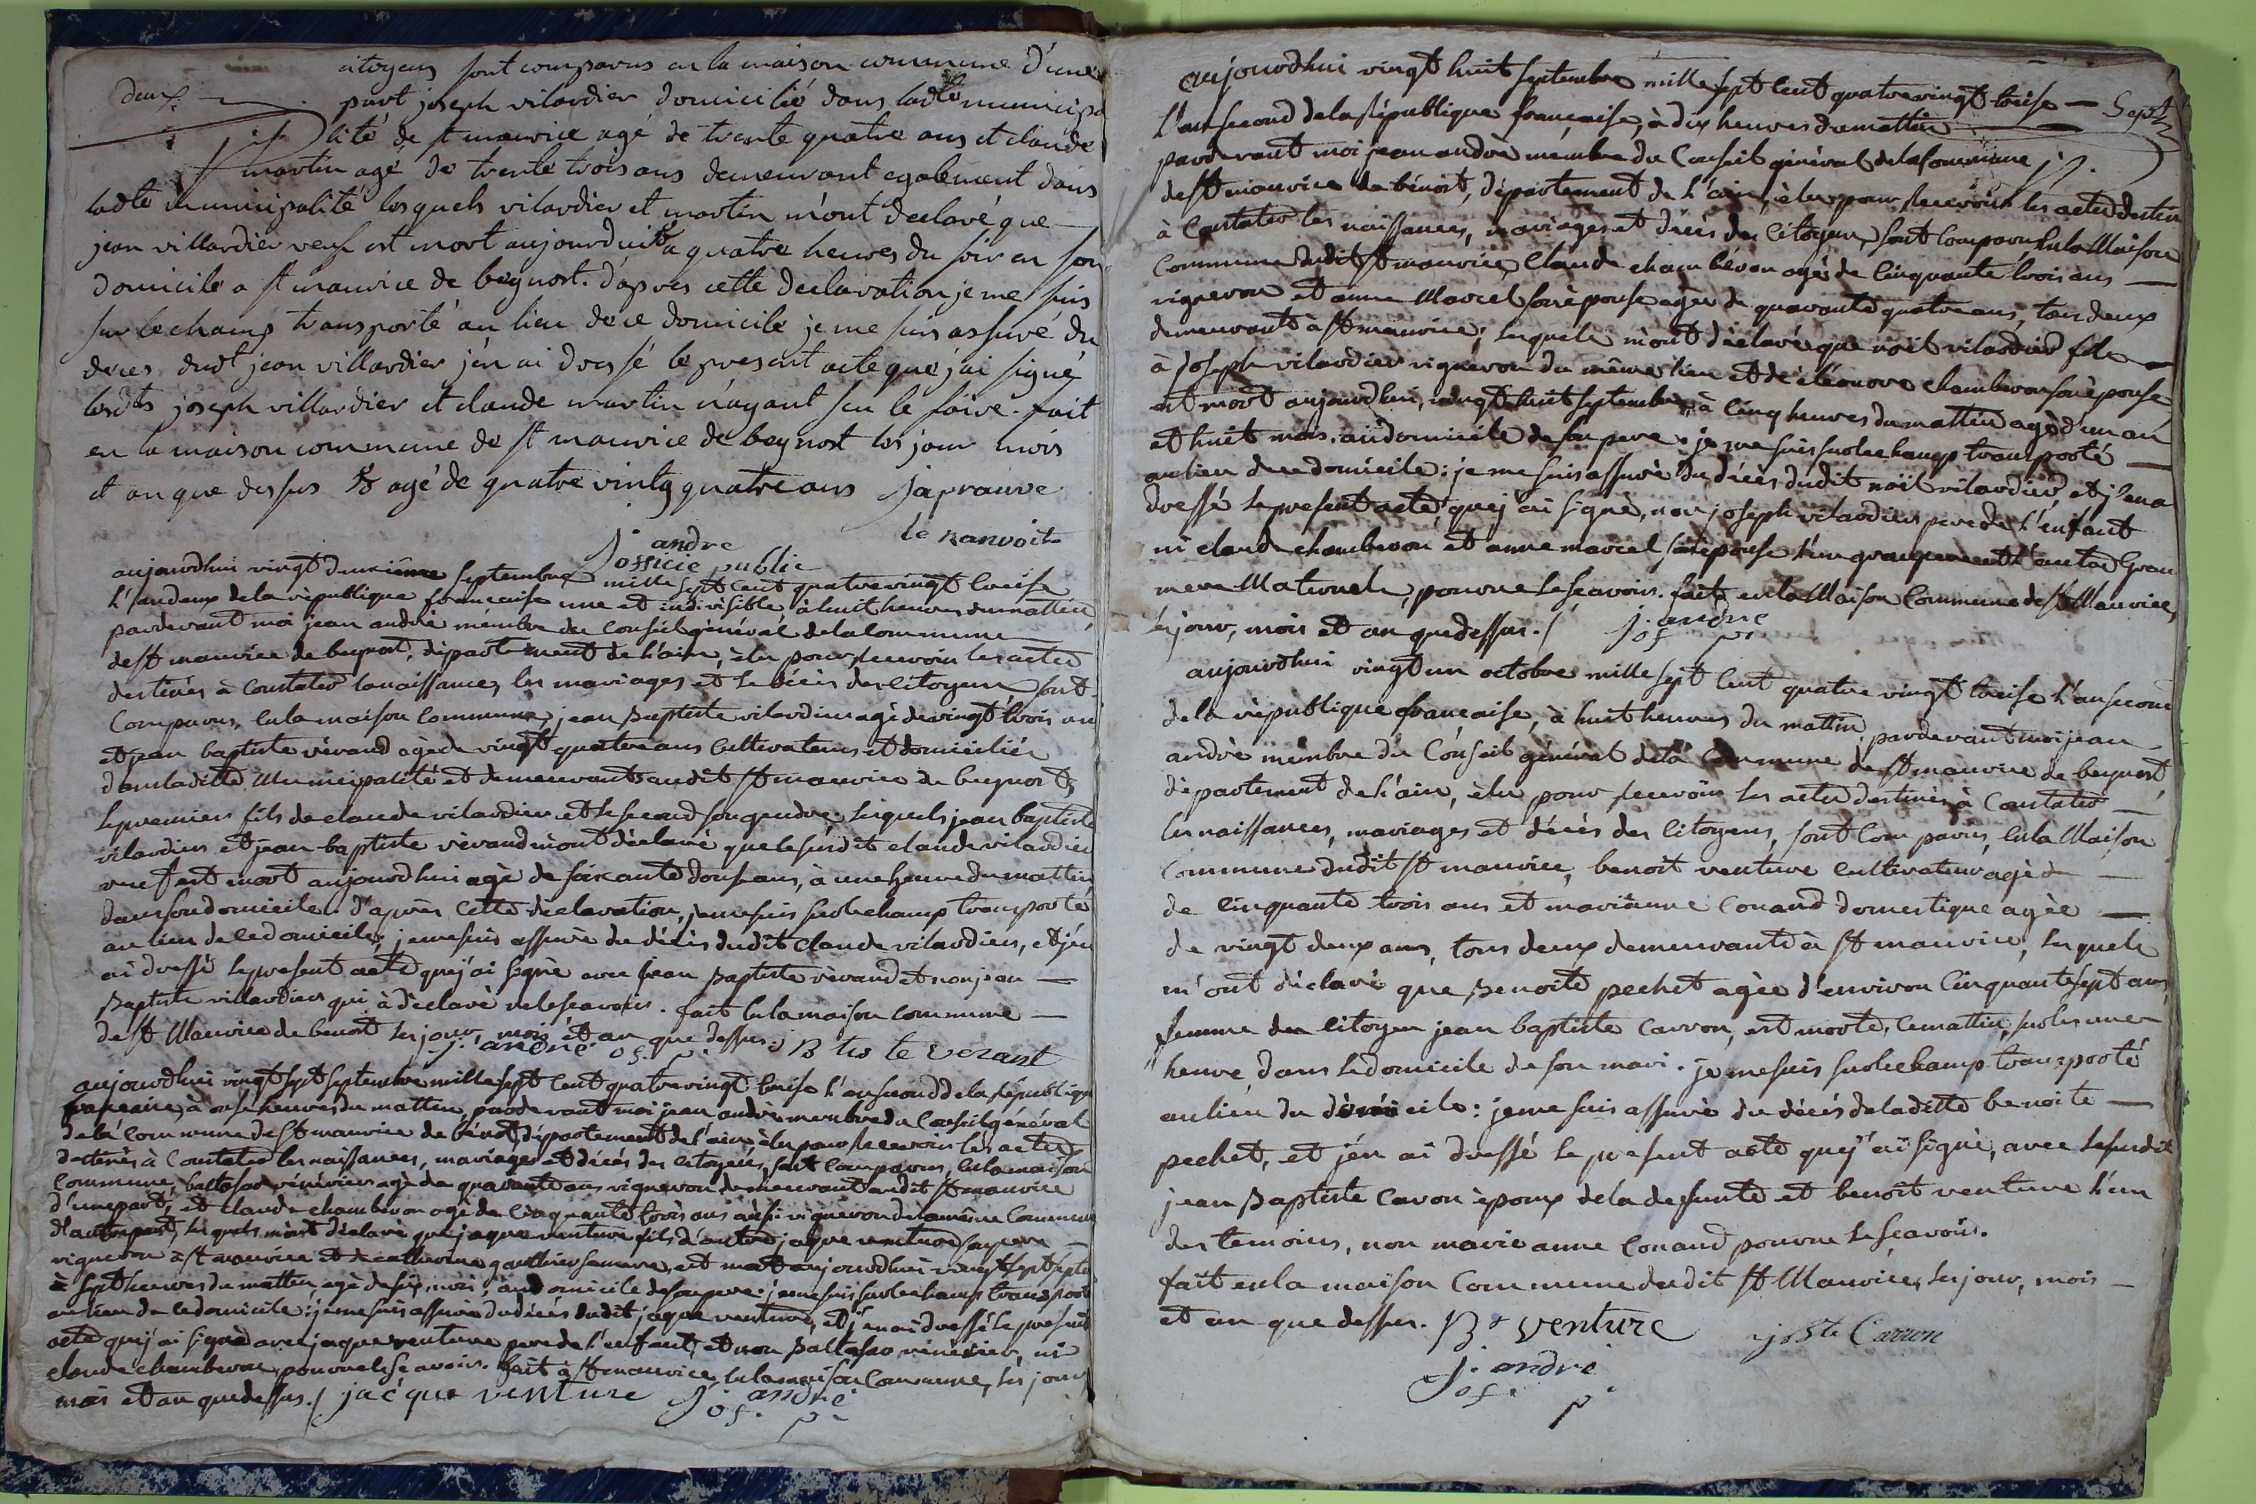 citoyens sont comparus en la maison commune d'une
deux. part joseph vilardier domicilié dans ladte municipa
lité de st maurice agé de trente quatre ans et claude
martin agé de trente trois ans demeurant egalement dans
ladte municipalité lesquels vilardier et martin m'ont declaré que
jean villardier veuf est mort aujourduit a quatre heures du soir en son
domicile a st maurice de beynost. d'apres cette declaration je me suis
sur le champ transporté au lieu de ce domicile je me suis assuré du
deces dudt jean villardier j'en ai dressé le present acte que j'ai signé
lesdts joseph villardier et claude martin n'ayant sçu le faire. fait
en la maison commune de st maurice de beynost les jour mois
et an que dessus agé de quatre vintg quatre ans japrouve
le ranvoit
j andre
officié public
aujourdhui vingt deuxième septembre mille sept cent quatre vingt treise
l'an deux de la république française une et indivisible à huit heures du mattin,
pardevant moi jean andré mémbre du conseil général de la commune
de st maurice de beynost, département de l'ain, élu pour recevoir les actes
destinés à constater la naissance, les mariages et le décès des citoyens sont
comparus, en la maison commune, jean baptiste vilardier agé de vingt trois ans
et jean baptiste vérand agé de vingt quatre ans cultivateurs et domiciliés
dans laditte municipalité et demeurants audit st maurice de beynost,
le premier fils de claude vilardier et le second son gendre. lesquels jean baptiste
vilardier et jean baptiste vérand m'ont déclaré que le susdit claude vilardier
veuf est mort aujourdhui agé de soixante douse ans, à une heure du mattin
dans son domicile. d'après cette déclaration, je me suis sur le champ transporté
au lieu de ce domicile, je me suis assuré du décès dudit claude vilardier, et j'en
ai dressé le present acte que j'ai signé avec jean baptiste vérand et non jean
baptiste villardier qui à déclaré ne le sçavoir. fait en la maison commune
de st Maurice de benost les jour, mois et an que dessus.
j. andré of. p. j B tis te verant
aujourdhui vingt sept septembre mille sept cent quatre vingt treise l'an second de la république
française, à onse heures du mattin, pardevant moi jean andré membre du conseil général
de la commune de st maurice de bénost département de l'ain élu pour recevoir les actes
destinés à constater les naissances, mariages et décès des citoyens, sont comparus, en la maison
commune, baltasar vénérier agé de quarante ans vigneron demeurant audit st maurice
d'une part, et claude chamberon agé de cinquante trois ans aussi vigneron de la même commune
d'autre part, lesquels m'ont déclaré que jaque venture fils d'autre jaque venture
vigneron à st maurice et de catherine gauthier sa femme, est mort aujourdhui vingt sept septe
à sept heures du mattin, agé de six mois, au domicile de son pere: je me suis sur le champ transporté
au lieu de ce domicile: je me suis assuré du décès dudit jaque venture, et j'en ai dressé le présent
acte que j'ai signé avec jaque venture pere de l'enfant, et non baltasar vénérier, ni
claude chamberon, pour ne le sçavoir. fait à st maurice, en la maison commune, les jour,
mois et an que dessus. jacque venture j. andré
of. p.
aujourdhui vingt huit septembre mille sept cent quatre vingt treise Sept
l'an second de la République française, à dix heures du mattin
pardevant moi jean andré mémbre du Conseil général de la Commune
de st maurice de bénost, département de l'ain, élu pour recevoir les actes destinés
à constater les naissances, mariages et décès des citoyens, sont comparus, en la Maison
commune dudit st maurice, claude chamberon agé de cinquante trois ans
vigneron et anne Marcel son épouse agée de quarante quatre ans, tous deux
demeurants à st maurice; lesquels m'ont déclaré que noël vilardier fils
à joseph vilardier vigneron du même lieu et de éléonore chamberon son épouse
est mort aujourdhui, vingt huit septembre, à cinq heures du mattin agé d'un an
et huit mois. au domicile de son pere. je me suis sur le champ transporté
au lieu de ce domicile: je me suis assuré du décès dudit noël vilardier, et j'en ai
dressé le present acte que j'ai signé, non joseph vilardier pere de l'enfant
ni claude chamberon et anne marcel son épouse l'un grand pere et l'autre Gran
mere Maternels, pour ne le sçavoir. fait en la Maison commune de st Maurice,
les jour, mois et an que dessus. j. andré
of. p.
aujourdhui vingt un octobre mille sept cent quatre vingt treise l'an second
de la république française, à huit heures du mattin, pardevant moi jean
andré mémbre du Conseil général de la commune de st maurice de beynost,
département de l'ain, élu pour recevoir les actes destinés à constater
les naissances, mariages et décès des citoyens, sont comparus, en la Maison
commune dudit st maurice, benoit venture cultivateur agé
de cinquante trois ans et marianne conand domestique agée
de vingt deux ans, tous deux demeurants à st maurice, lesquels
m'ont déclaré que Benoite pechet agée d'environ cinquante sept ans,
femme du citoyen jean baptiste carron, est morte, ce mattin, sur les une
heure, dans le domicile de son mari. je me suis sur le champ transporté
au lieu du domicile: je me suis assuré du décès de laditte benoite
pechet, et j'en ai dressé le present acte que j'ai signé, avec le susdit
jean Baptiste Caron époux de la defunte et benoit venture l'un
des temoins, non marie anne conand pour ne le sçavoir.
fait en la maison commune dudit st Maurice, les jour, mois
et an que dessus. Bt venture jbste Carron
j. andré
of. p